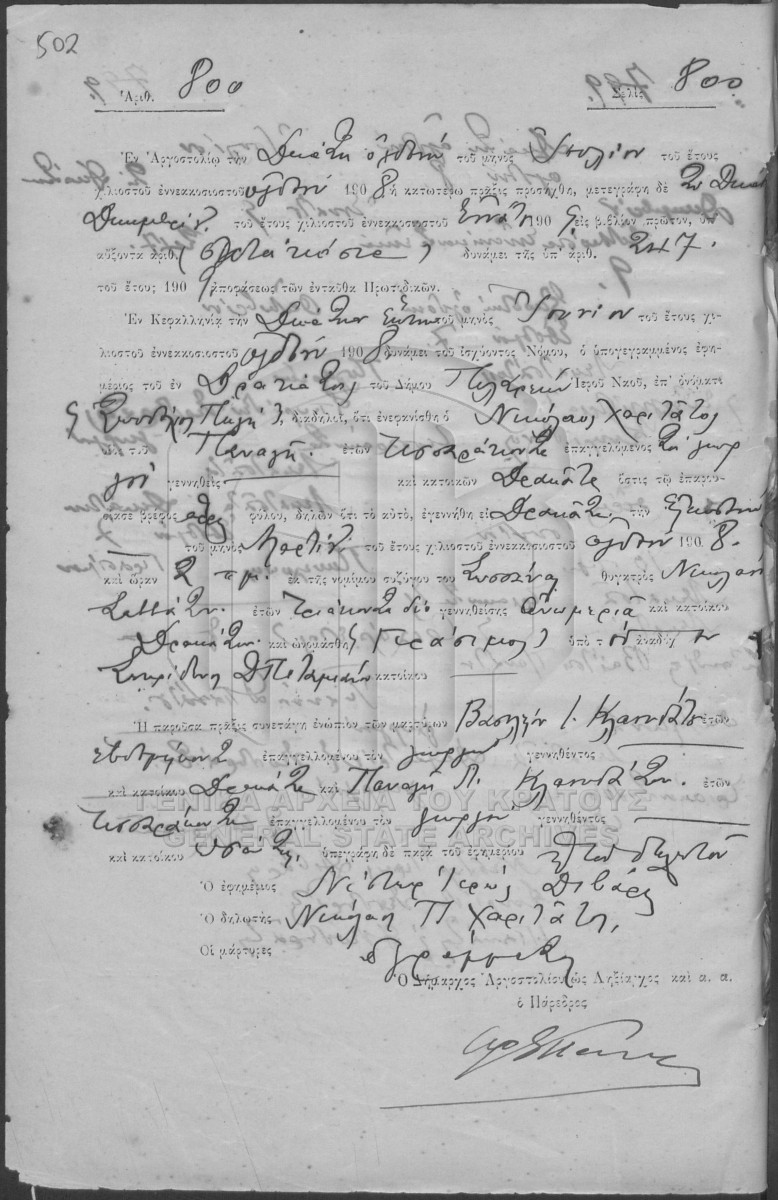 502
Ἀριθ. 800 Σελὶς 800
Ἐν Ἀργοστολίῳ τὴν Δεκάτη ὀγδόη τοῦ μηνὸς Ἰουλίου τοῦ ἔτους
χιλιοστοῦ ἐννεακοσιοστοῦ ὀγδόου 1908 ἡ κατωτέρω πρᾶξις προσήχθη, μετεγράφη δὲ
Δεκεμβρίου τοῦ ἔτους χιλιοστοῦ ἐννεακοσιοστοῦ ἐννάτου 1909 εἰς βιβλίον πρῶτον, ὑπ'
αὔξοντα ἀριθ. ( ) δυνάμει τῆς ὑπ' ἀριθ. 247.
τοῦ ἔτους 1909 ἀποφάσεως τῶν ἐνταῦθα Πρωτοδικῶν.
Ἐν Κεφαλληνίᾳ τὴν Δεκάτην ἕκτην τοῦ μηνὸς Ἰουνίου τοῦ ἔτους χι-
λιοστοῦ ἐννεακοσιοστοῦ ὀγδόου 1908 δυνάμει τοῦ ἰσχύοντος Νόμου, ὁ ὑπογεγραμμένος ἐφη-
μέριος τοῦ ἐν Δρακάτοις τοῦ Δήμου Πυλαρέων Ἱεροῦ Ναοῦ, ἐπ' ὀνόματι
διαδηλοῖ, ὅτι ἐνεφανίσθη ὁ Νικόλαος Χαριτάτος
υἱὸς τοῦ Παναγῆ ἐτῶν τεσσαράκοντα ἐπαγγελόμενος γεωρ
γοῦ γεννηθεὶς καὶ κατοικῶν Δρακάτα ὅστις τῷ ἐπαρου-
σίασε βρέφος φύλου, δηλῶν ὅτι τὸ αὐτὸ, ἐγεννήθη εἰς Δρακάτα, τὴν Εἰκοστὴν
τοῦ μηνὸς Μαρτίου τοῦ ἔτους χιλιοστοῦ ἐννεακοσιοστοῦ ὀγδόου 1908.
καὶ ὥραν 2 π.μ. ἐκ τῆς νομίμου συζύγου του Σωσάνας θυγατρὸς Νικολάου
ἐτῶν τριάκοντα δύο γεννηθείσης καὶ κατοίκου
Δρακάτων καὶ ὠνομάσθη (Γεράσιμος) ὑπὸ τοῦ ἀναδόχου
Σπυρίδωνος κατοίκου
Ἡ παροῦσα πρᾶξις συνετάγη ἐνώπιον τῶν μαρτύρων Βασιλείου Ι. Κλαουδάτου ἐτῶν
ἑβδομήκοντα ἐπαγγελλομένου τὸν γεωργὸν γεννηθέντος
καὶ κατοίκου Δρακάτα καὶ Παναγῆ Π. Κλαουδάτου. ἐτῶν
τεσσαράκοντα ἐπαγγελλομένου τὸν γεωργὸν γεννηθέντος
καὶ κατοίκου ὑπεγράφη δὲ παρὰ τοῦ ἐφημερίου
Ὁ ἐφημέριος Νέστωρ Ἱερεὺς
Ὁ δηλωτὴς Νικόλαος Π Χαριτάτος
Οἱ μάρτυρες ἀγράμματοι
Ὁ Δήμαρχος Ἀργοστολίου ὡς Ληξίαρχος καὶ α. α.
ὁ Πάρεδρος
ΓΕΝΙΚΑ ΑΡΧΕΙΑ ΤΟΥ ΚΡΑΤΟΥΣ
GENERAL STATE ARCHIVES